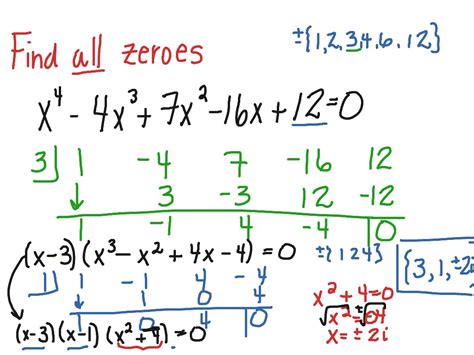 Find all zeroes
±{1,2,3,4,6,12}
x⁴ - 4x³ + 7x² - 16x + 12 = 0
3 | 1 -4 7 -16 12
↓ 3 -3 12 -12
1 -1 4 -4 | 0
(x-3)(x³ - x² + 4x - 4) = 0 ±{1 2 4}
1 | 1 -1 4 -4
↓ 1 0 4
1 0 4 | 0
(x-3)(x-1)(x² + 4) = 0
x² + 4 = 0
x = ± 2i
{3, 1, ±2i